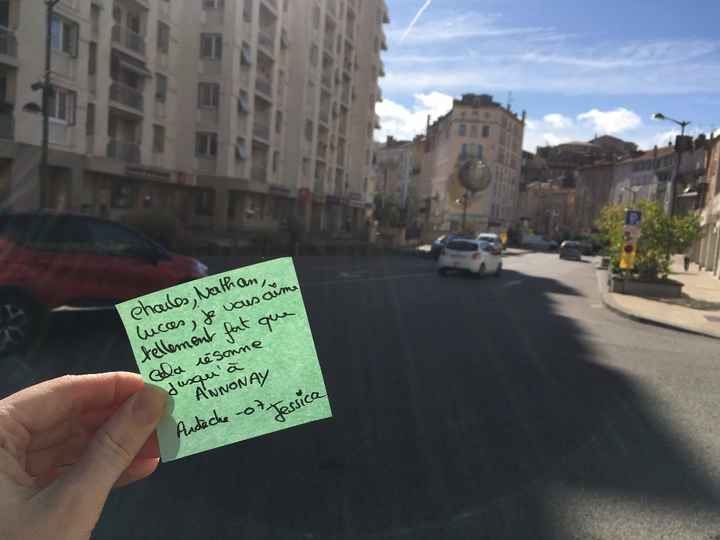 Charles, Nathan,
Lucas, je vous aime
tellement fort que
cela résonne
jusqu'à
ANNONAY
Ardèche -07- Jessica
P